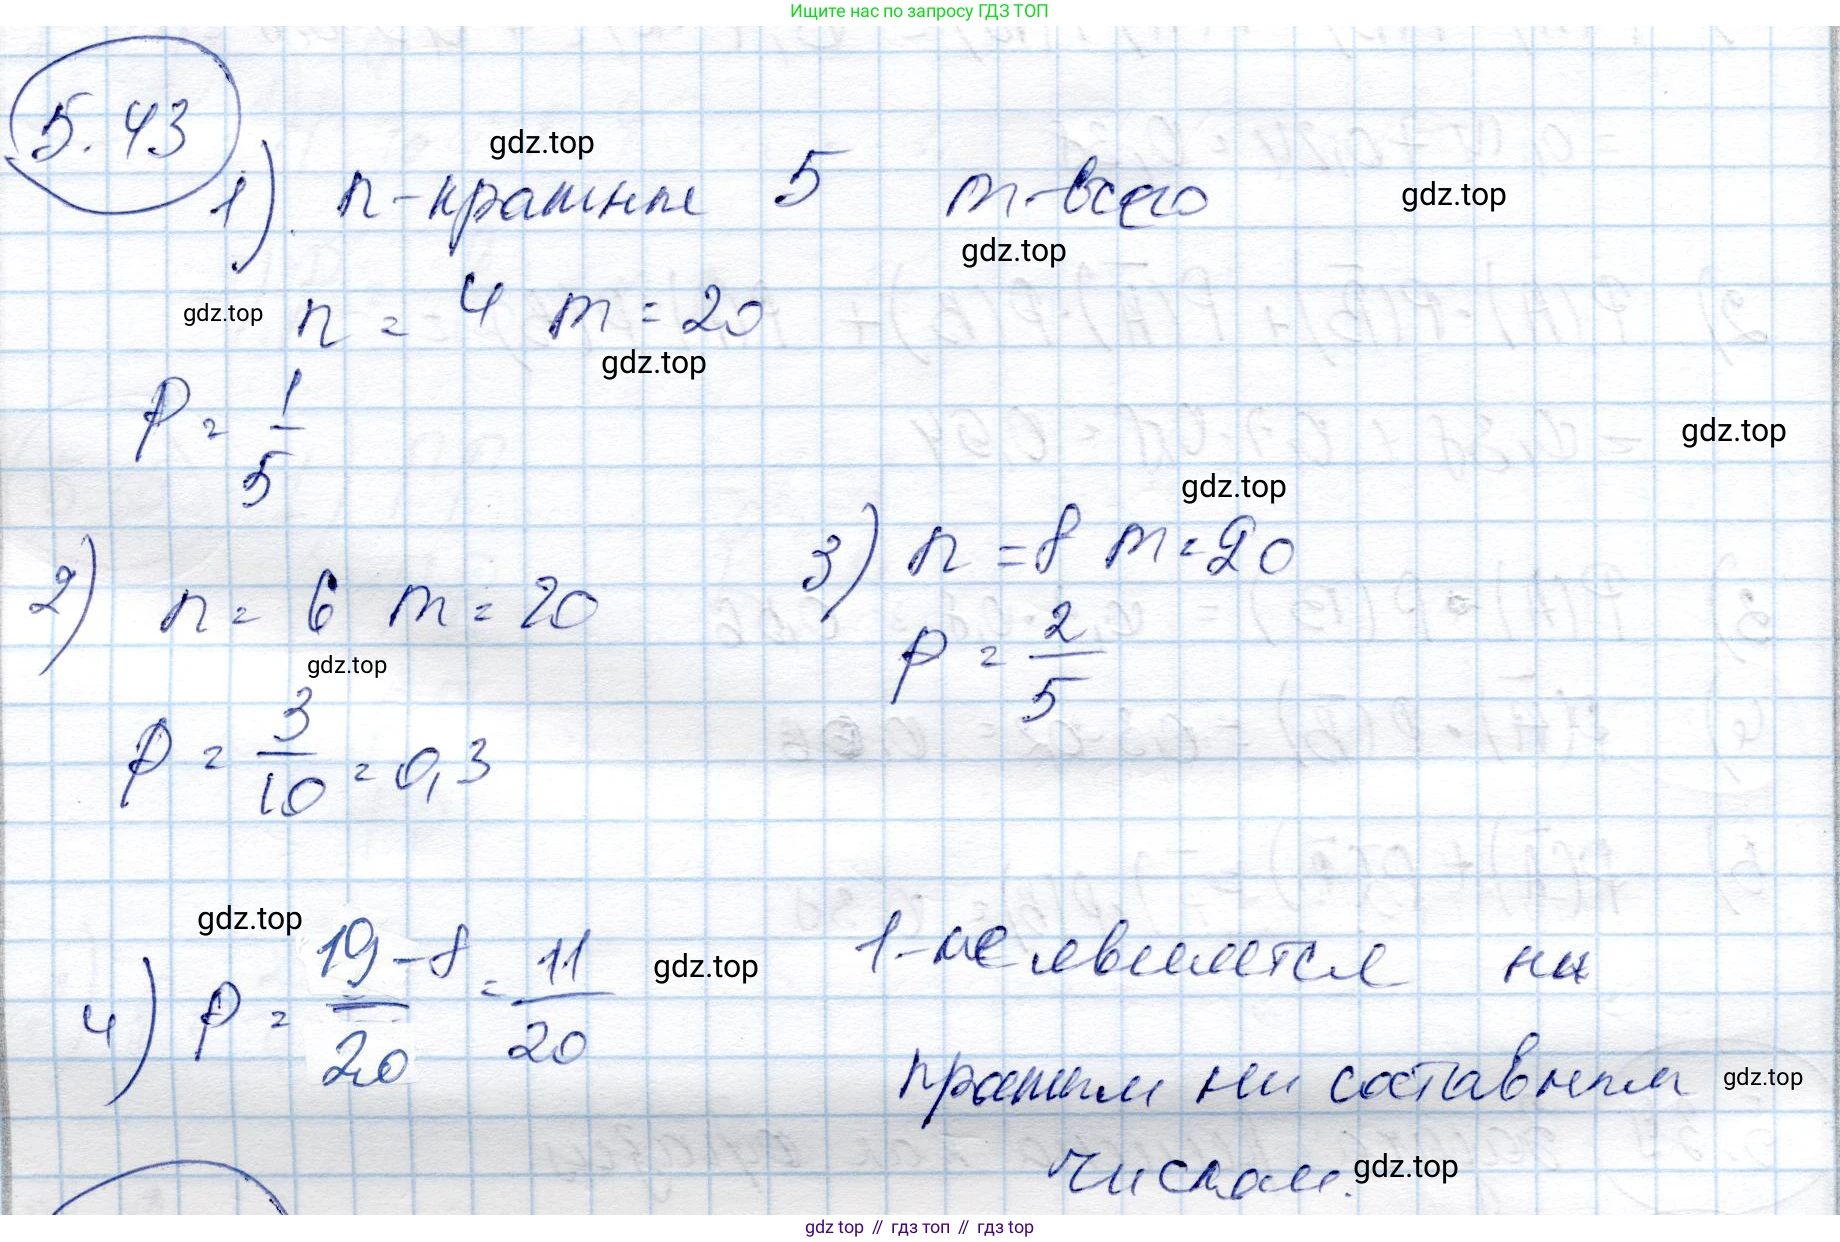 Ищите нас по запросу ГДЗ ТОП
5.43
gdz.top
1) n-кратные 5 m-всего
gdz.top
gdz.top
gdz.top
n = 4 m = 20
gdz.top
P = 1/5
gdz.top
gdz.top
2) n = 6 m = 20
gdz.top
P = 3/10 = 0,3
3) n = 8 m = 20
P = 2/5
gdz.top
4) P = 19-8/20 = 11/20
gdz.top
1-не является ни
кратным ни составным
gdz.top
числом.
gdz.top
gdz top // гдз топ // гдз top